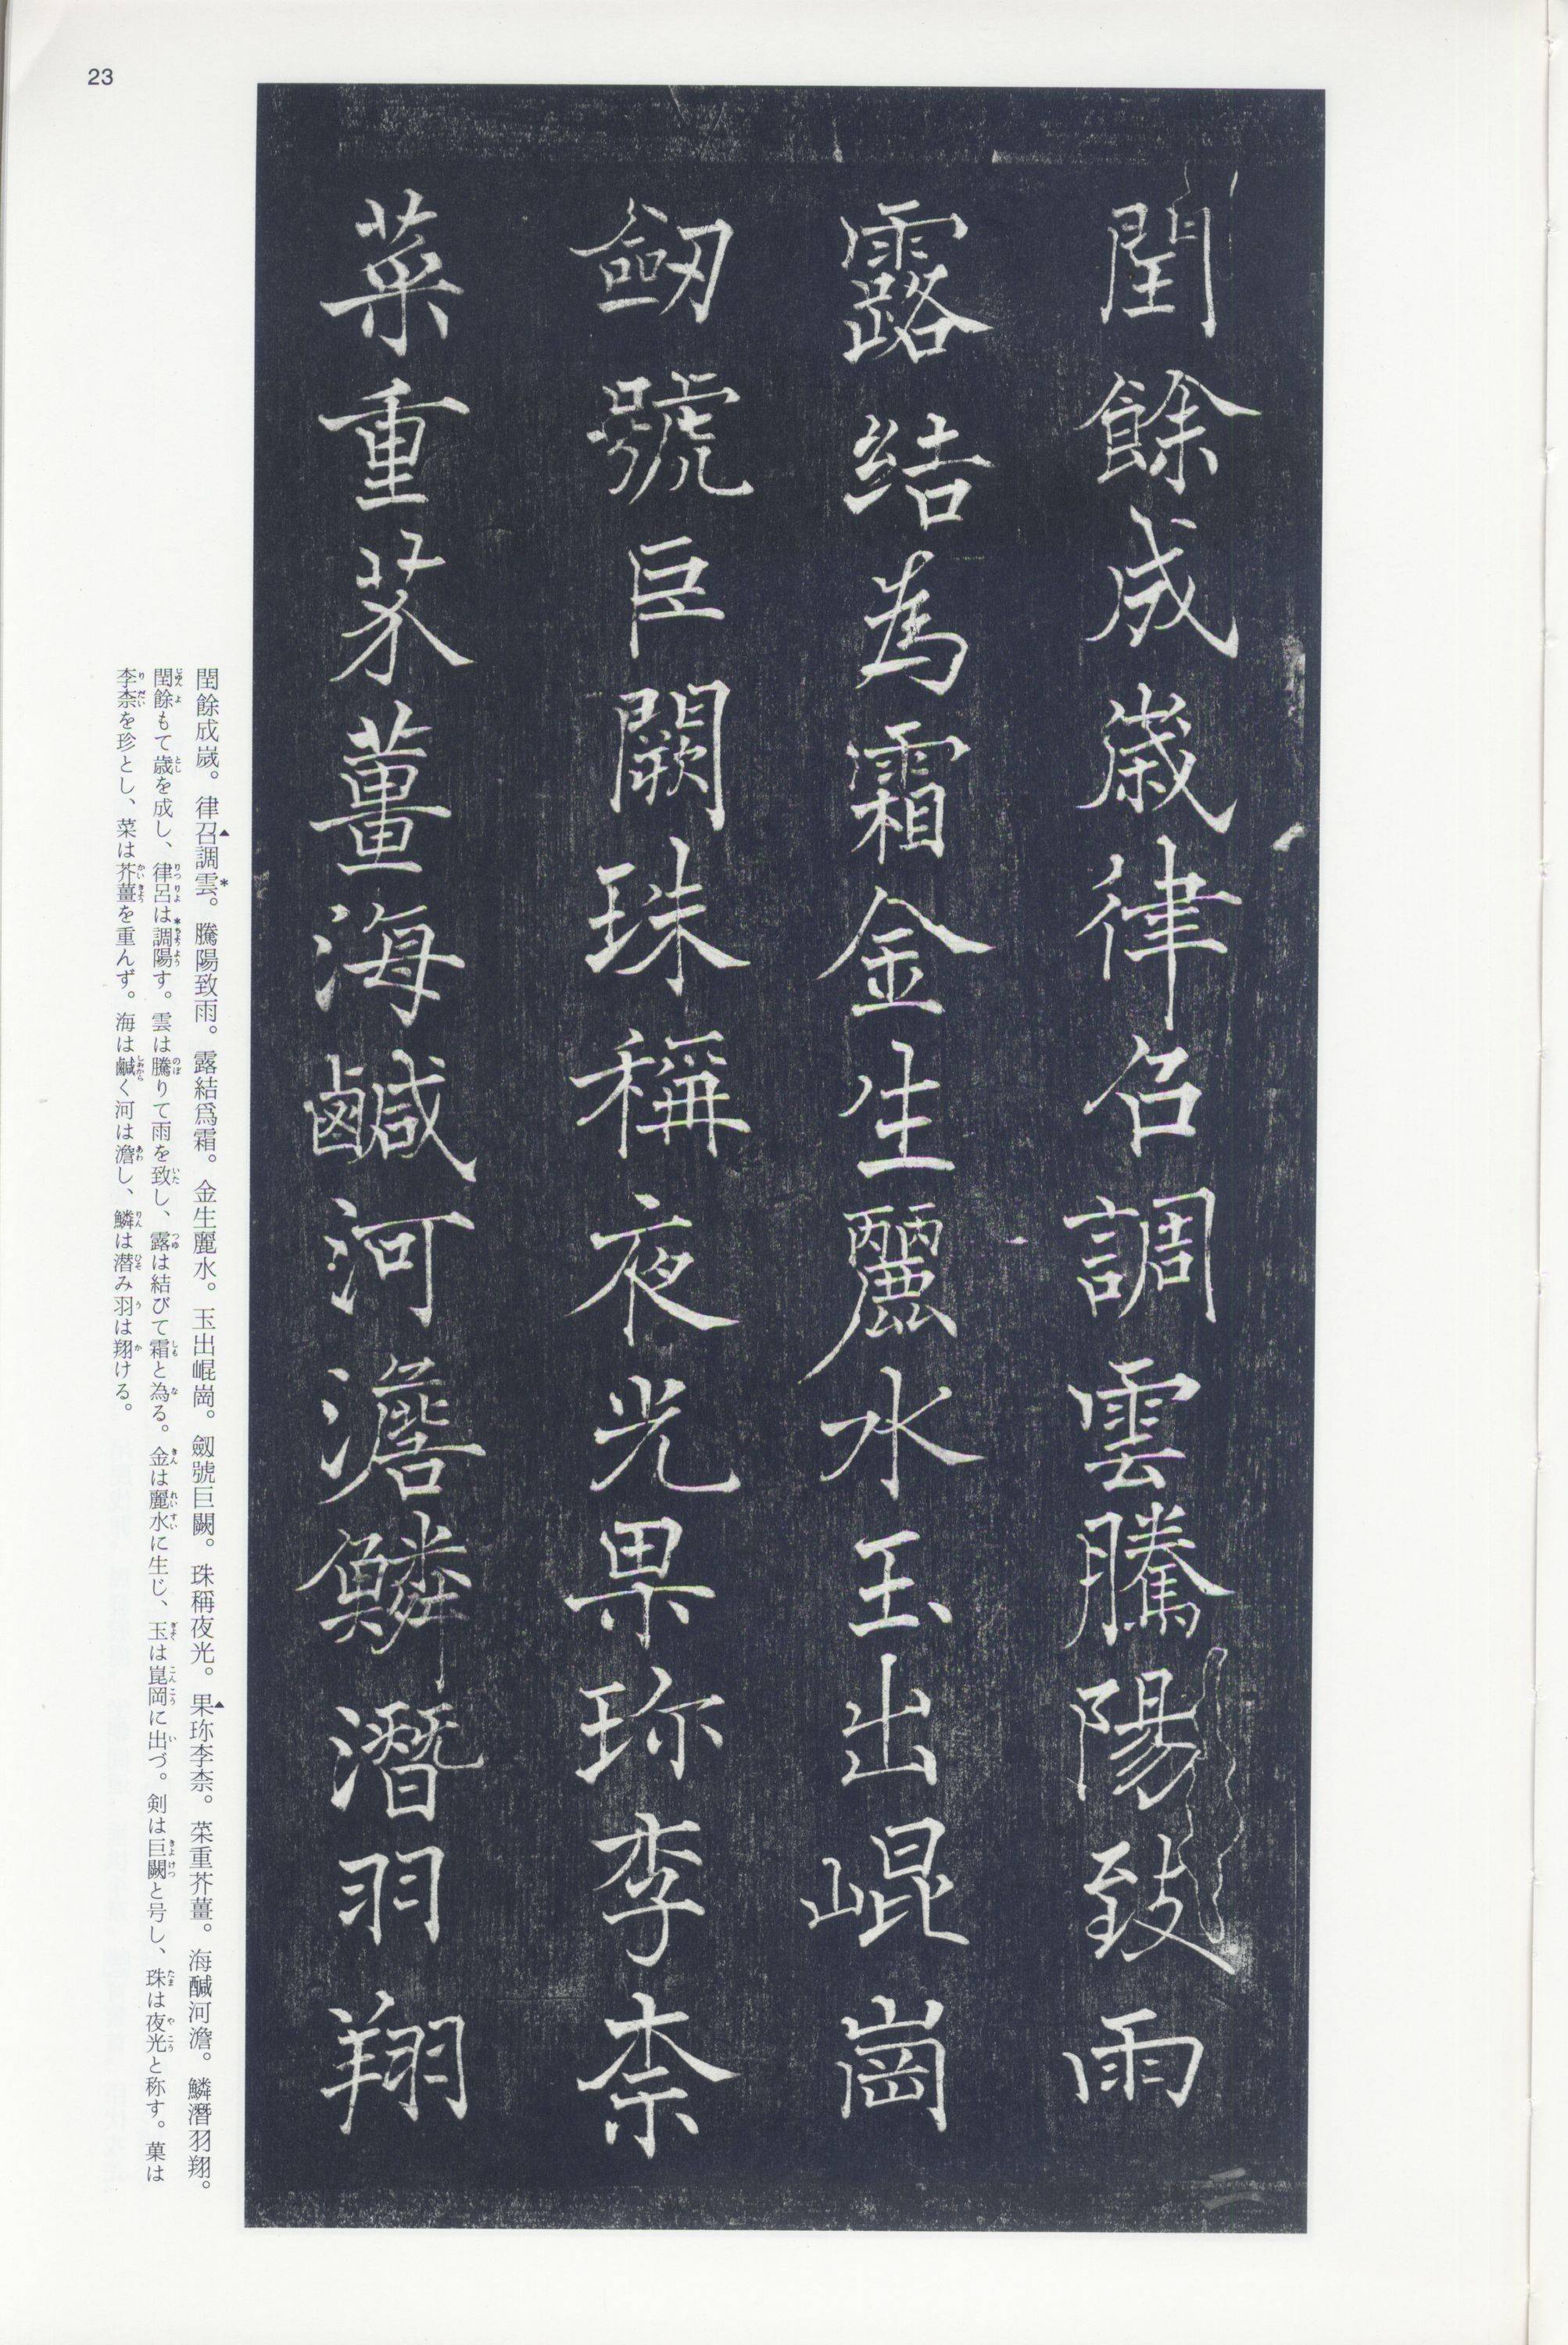 閏餘成歲律召調雲騰陽致雨
露結為霜金生麗水玉出崐崗
劒號巨闕珠稱夜光果珎李柰
菜重芥薑海鹹河澹鱗潛羽翔
閏餘成歲。律召調雲。騰陽致雨。露結爲霜。金生麗水。玉出崐崗。劒號巨闕。珠稱夜光。果珎李柰。菜重芥薑。海鹹河澹。鱗潛羽翔。
閏餘もて歳を成し、律呂は*調陽す。雲は騰りて雨を致し、露は結びて霜と為る。金は麗水に生じ、玉は崑岡に出づ。剣は巨闕と号し、珠は夜光と称す。菓は
李柰を珍とし、菜は芥薑を重んず。海は鹹く河は澹し、鱗は潜み羽は翔ける。
23